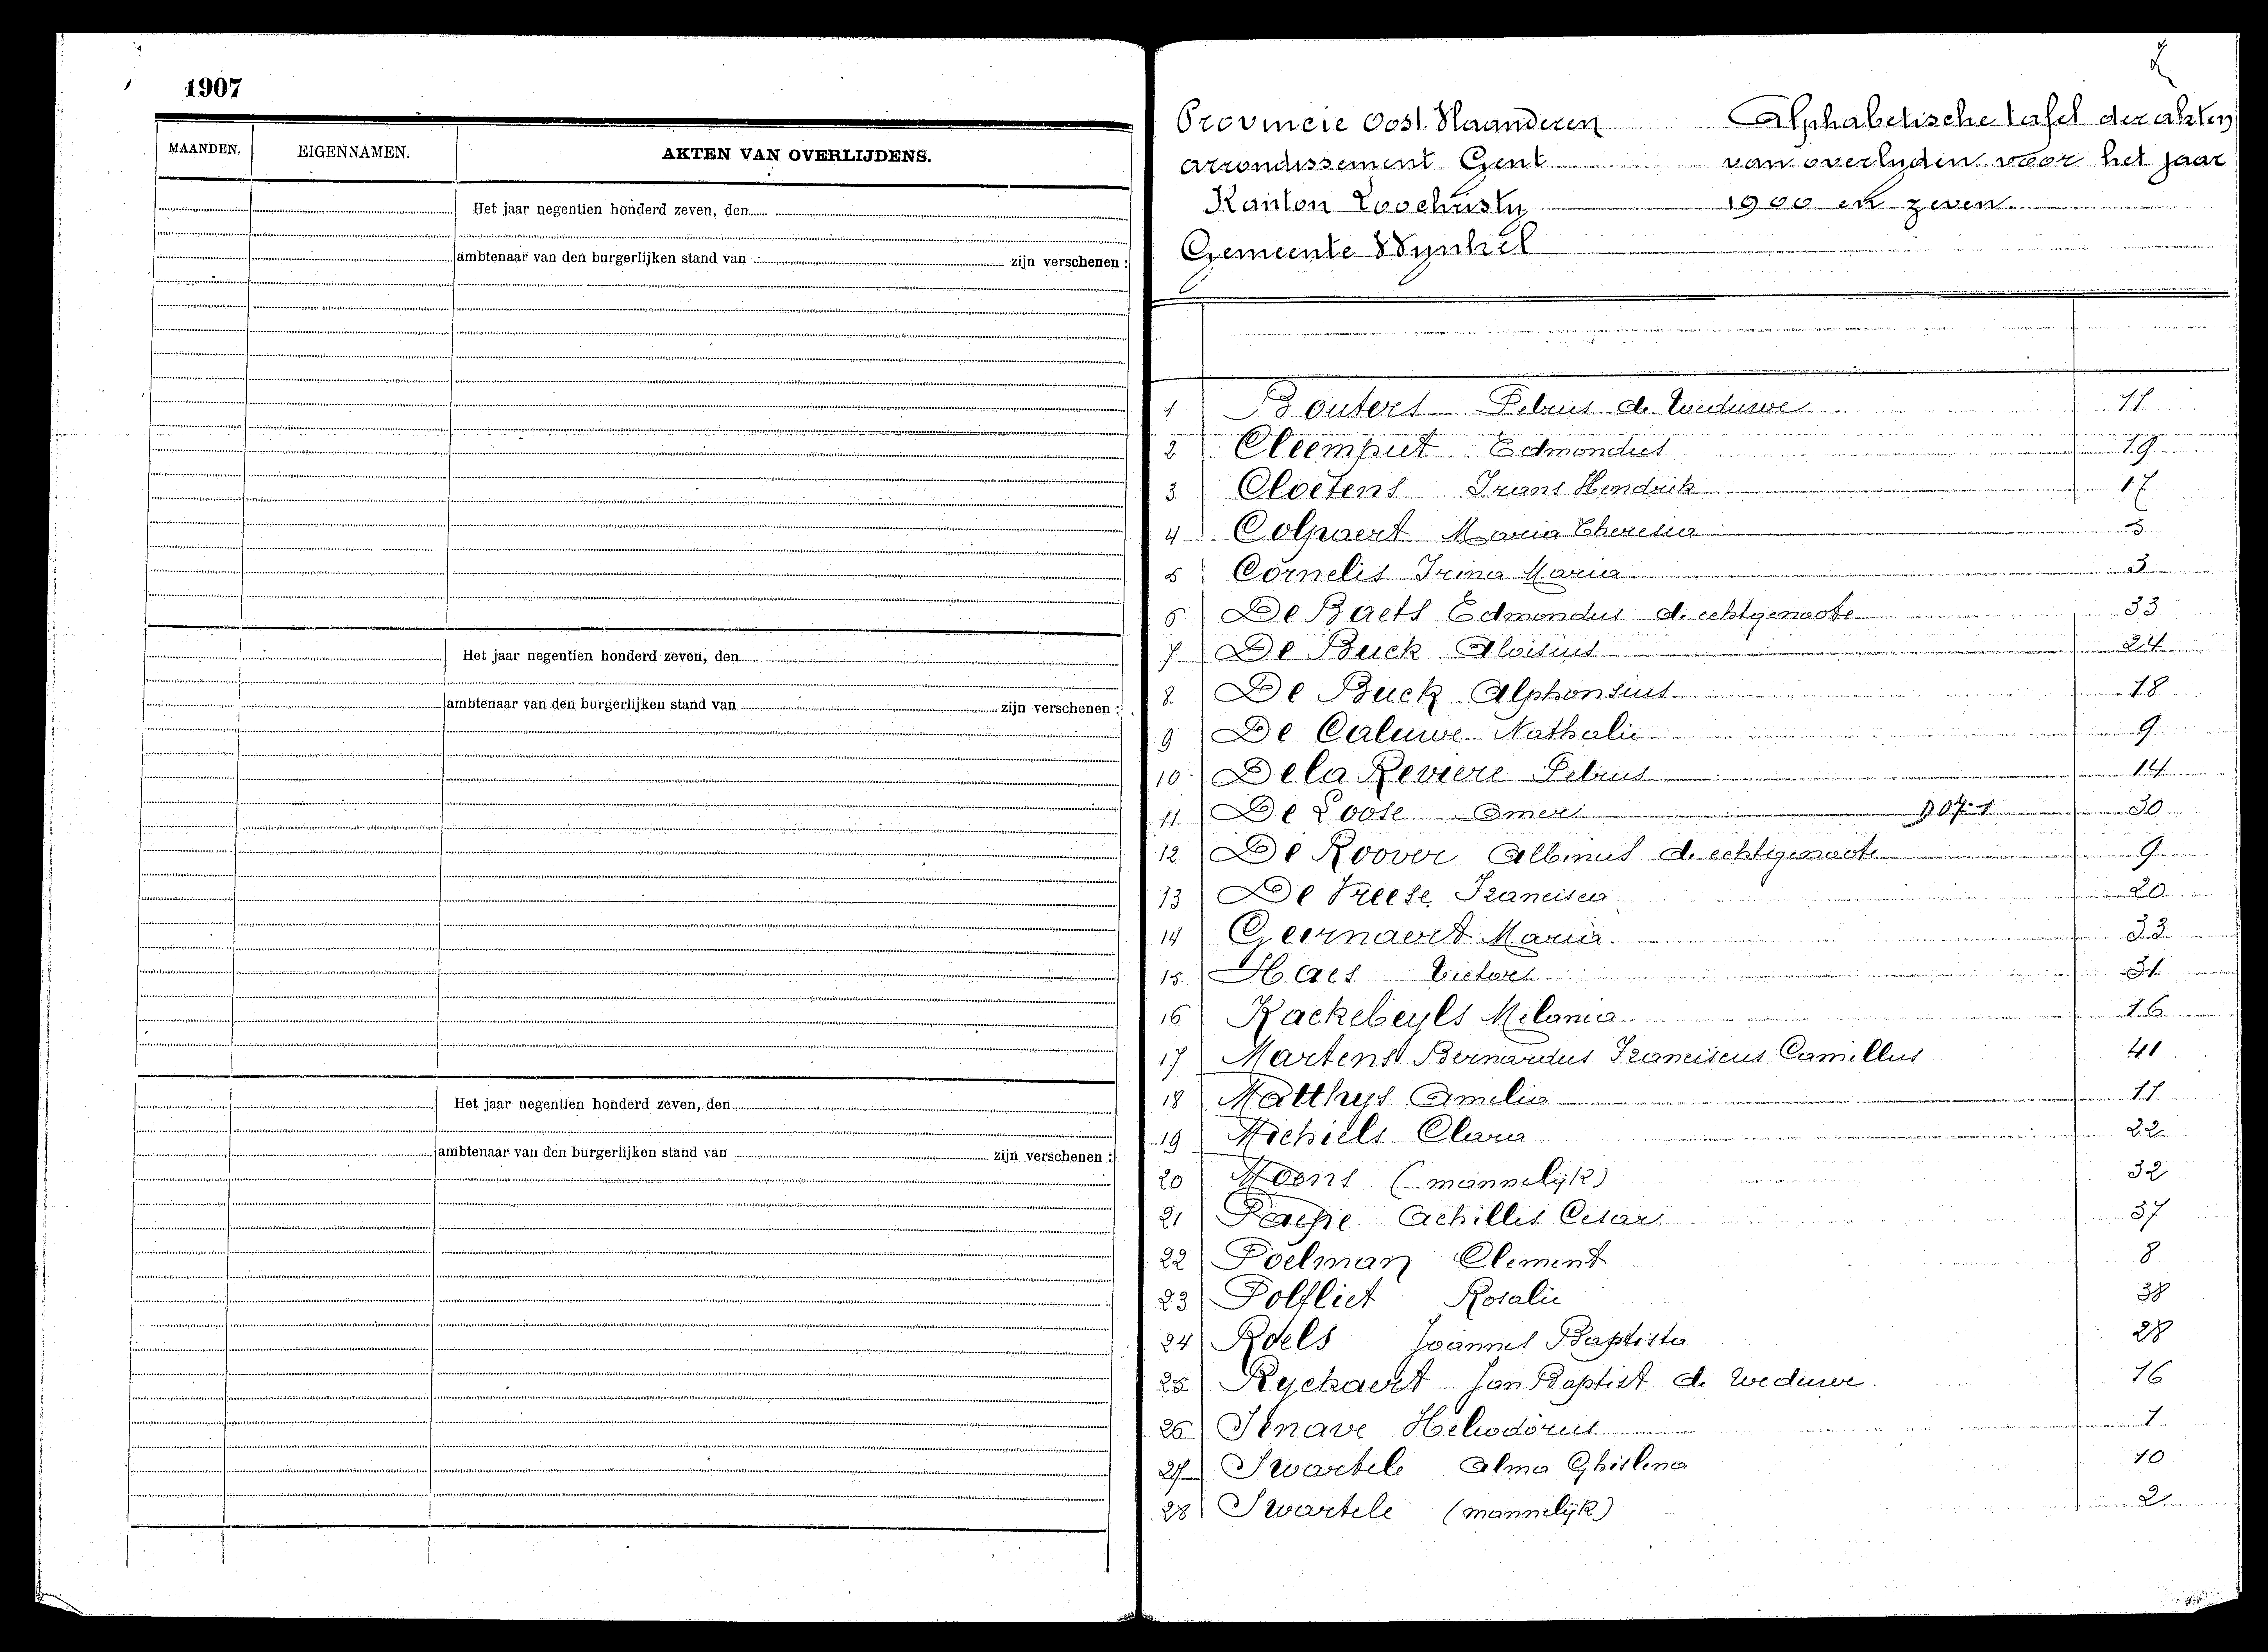 1907
MAANDEN. EIGENNAMEN. AKTEN VAN OVERLIJDENS.
Het jaar negentien honderd zeven, den
ambtenaar van den burgerlijken stand van zijn verschenen :
Het jaar negentien honderd zeven, den
ambtenaar van den burgerlijken stand van zijn verschenen :
Het jaar negentien honderd zeven, den
ambtenaar van den burgerlijken stand van zijn verschenen :
Provincie Oost. Vlaanderen Alphabetische tafel der akten
arrondissement Gent van overlyden voor het jaar
Kanton Loochristy 1900 en zeven.
Gemeente Wynkel
1 Bouters Petrus de Weduwe 11
2 Cleemput Edmondus 19
3 Cloetens Frans Hendrik 17
4 Colpaert Maria Theresia
5 Cornelis Irma Maria 3
6 De Baets Edmondus d. echtgenoote 33
7 De Buck Aloisius 24
8. De Buck Alphonsius 18
9 De Caluwe Nathalie 9
10 De la Reviere Petrus 14
11 De Loose Omer 907-1 30
12 De Roover Albinus d. echtgenoote 9
13 De Vreese Francisca 20
14 Geernaert Maria 33
15 Haes Victor 31
16 Kackebeyls Melania 16
17 Martens Bernardus Franciscus Camillus 41
18 Matthys Amelia 11
19 Michiels Clara 22
20 Moens (mannelijk) 32
21 Paepe Achilles Cesar 37
22 Poelman Clement 8
23 Polfliet Rosalie 38
24 Roels Joannes Baptista 28
25 Ryckaert Jan Baptist d. weduwe 16
26 Senave Heliodorus 1
27 Swartele Alma Ghislena 10
28 Swartele (mannelijk) 2